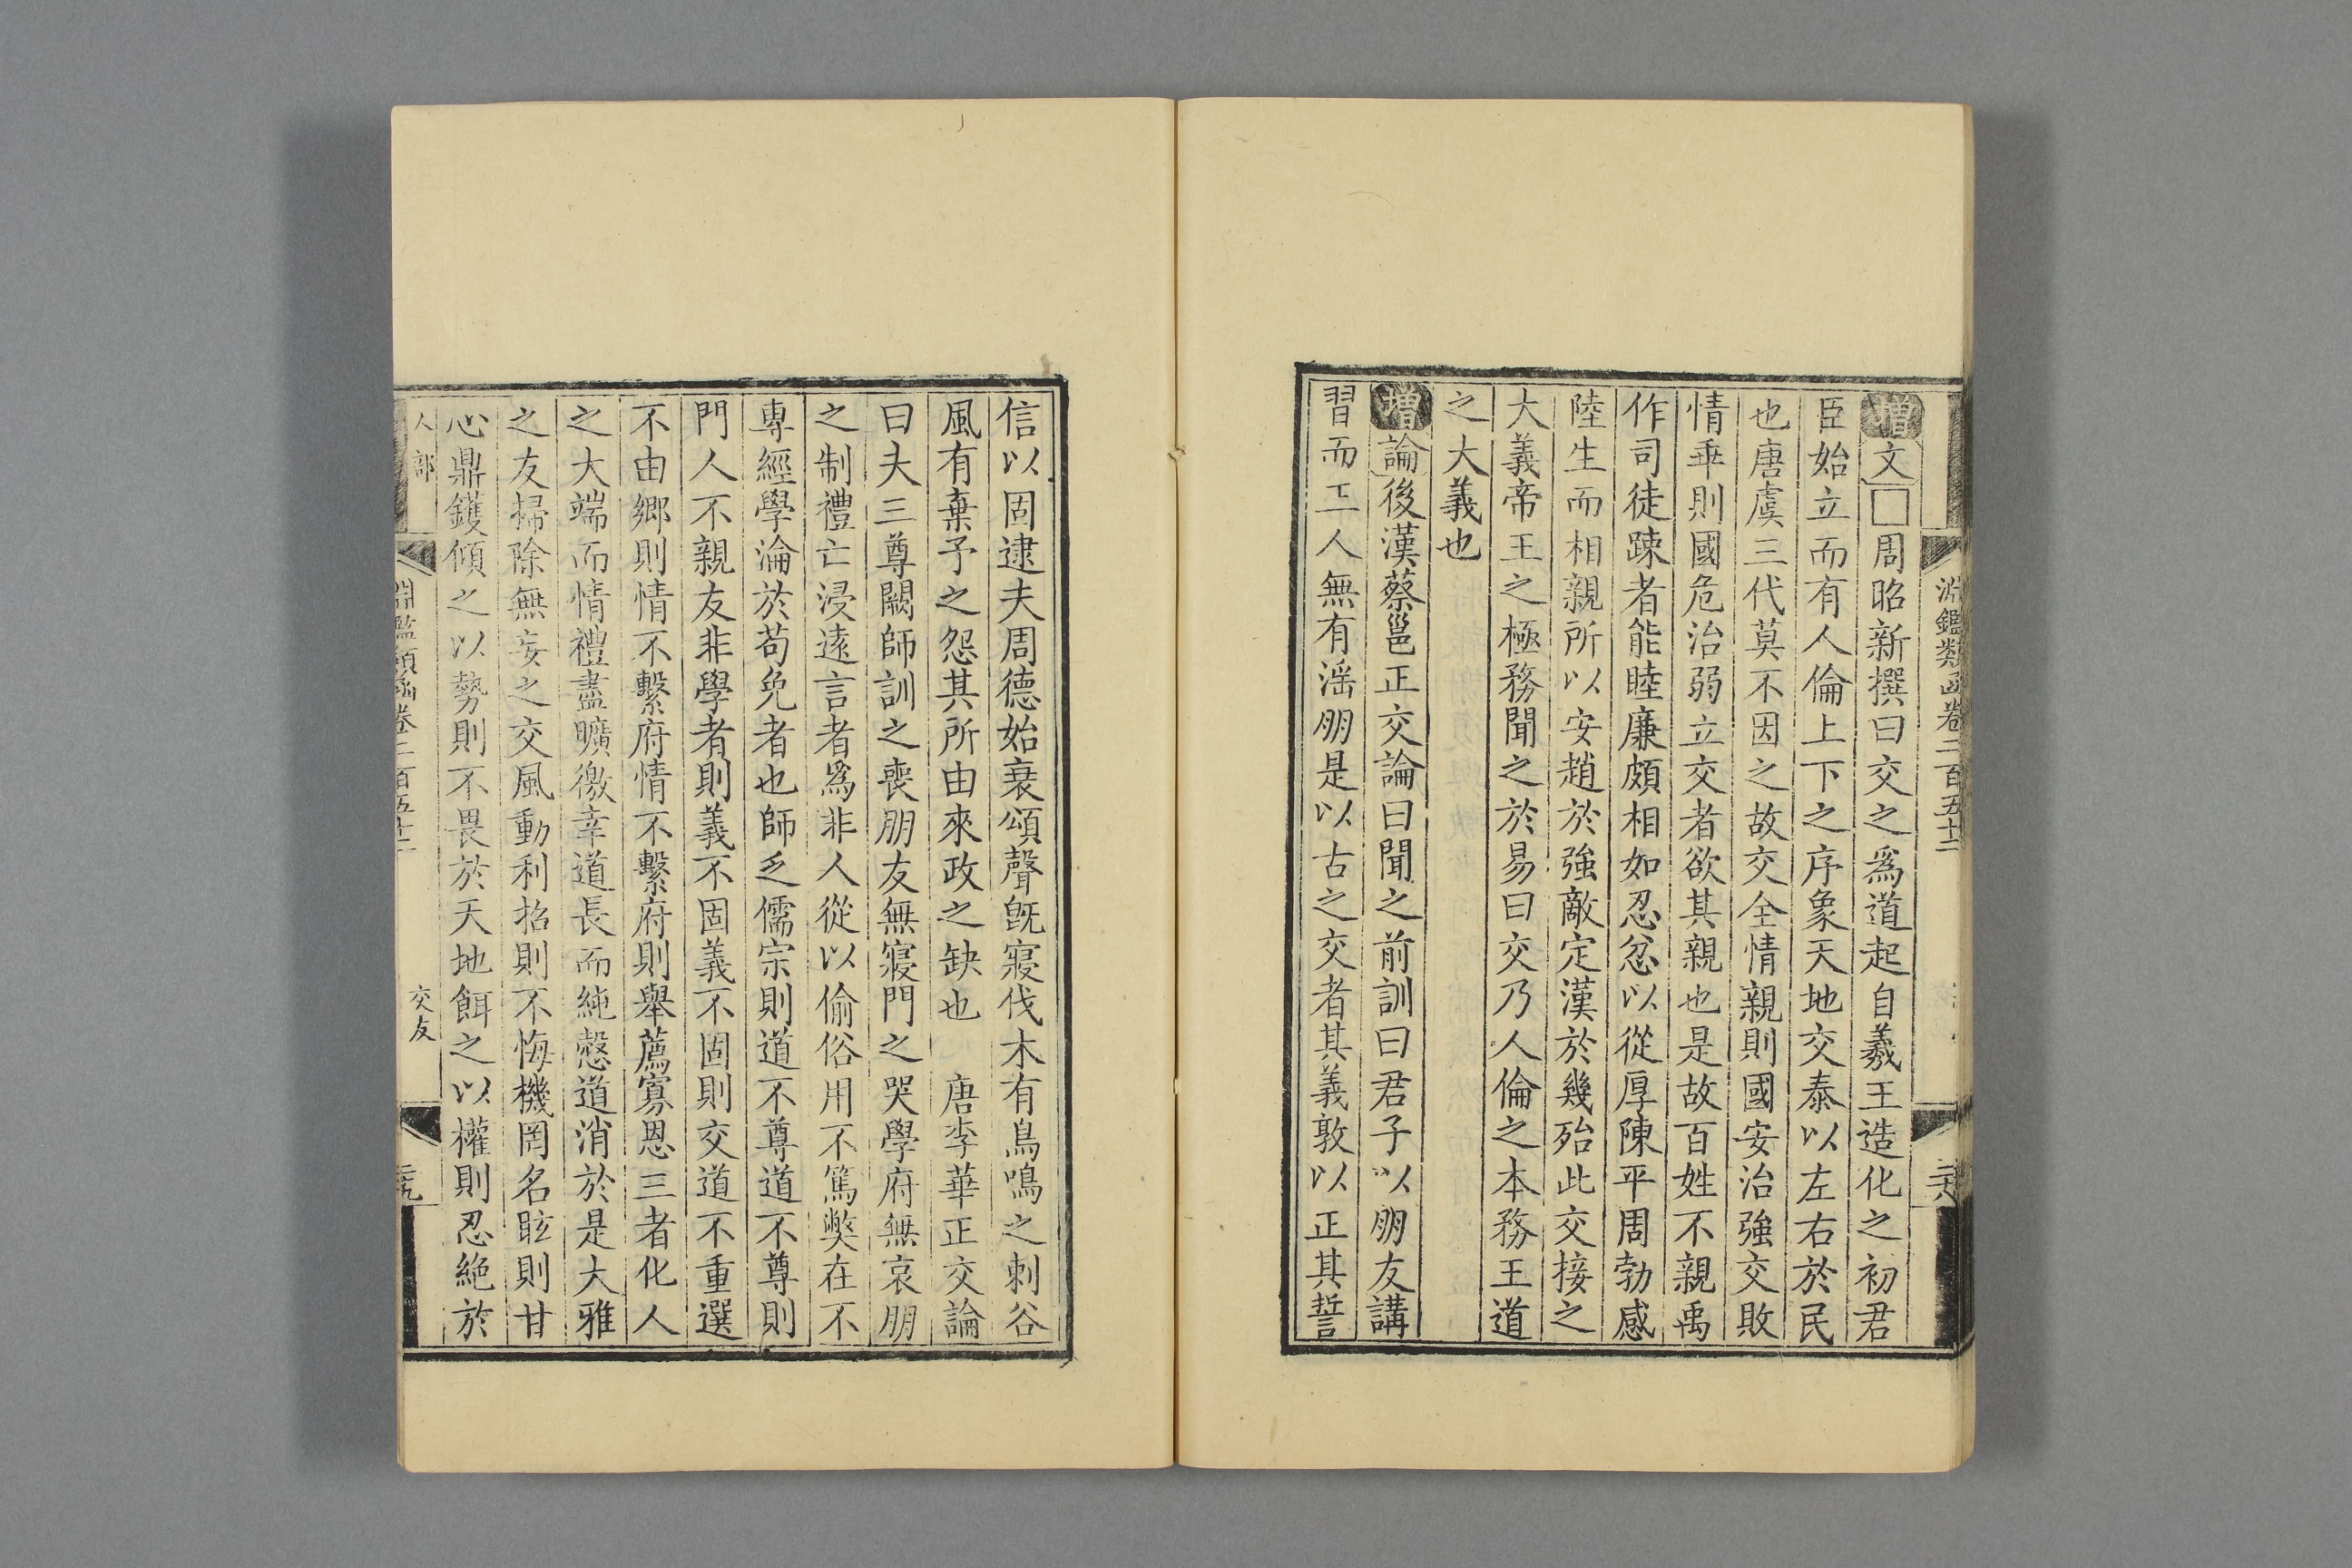 淵鑑類函卷二百五十二
增文□周昭新撰曰交之爲道起自羲王造化之初君
臣始立而有人倫上下之序象天地交泰以左右於民
也唐虞三代莫不因之故交全情親則國安治強交敗
情乖則國危治弱立交者欲其親也是故百姓不親禹
作司徒踈者能睦廉頗相如忍忿以從厚陳平周勃感
陸生而相親所以安趙於強敵定漢於幾殆此交接之
大義帝王之極務聞之於易曰交乃人倫之本務王道
之大義也
增論後漢蔡邕正交論曰聞之前訓曰君子以朋友講
習而工人無有淫朋是以古之交者其義敦以正其誓
信以固逮夫周德始衰頌聲旣寢伐木有鳥鳴之刺谷
風有棄予之怨其所由來政之缺也　唐李華正交論
曰夫三尊闕師訓之喪朋友無寢門之哭學府無哀朋
之制禮亡浸遠言者爲非人從以偷俗用不篤獘在不
專經學淪於苟免者也師乏儒宗則道不尊道不尊則
門人不親友非學者則義不固義不固則交道不重選
不由鄉則情不繫府情不繫府則舉薦寡恩三者化人
之大端而情禮盡曠徼幸道長而純慤道消於是大雅
之友掃除無妄之交風動利招則不悔機罔名眩則甘
心鼎鑊傾之以勢則不畏於天地餌之以權則忍絶於
人部
淵鑑類函卷二百五十二
交友